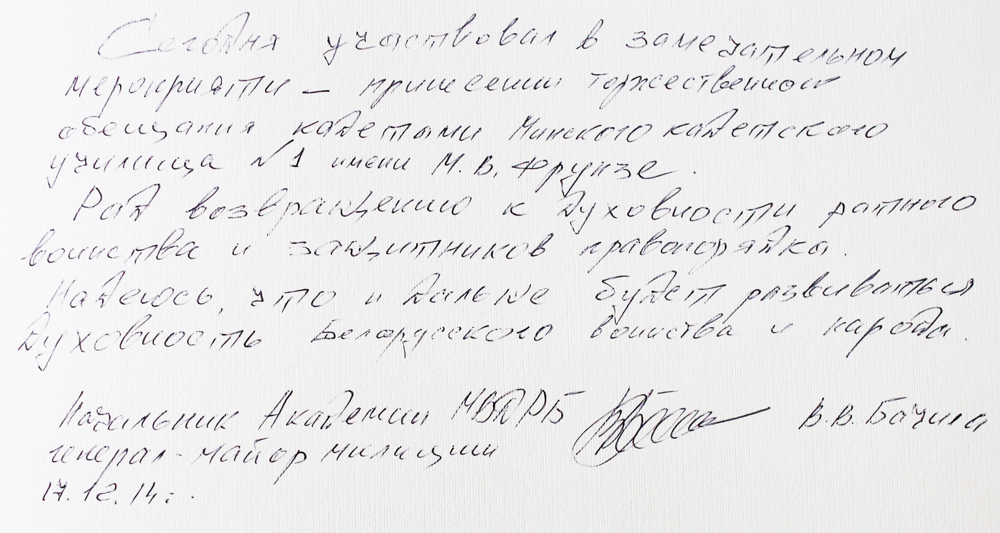 Сегодня участвовал в замечательном
мероприятии – принесении торжественного
обещания кадетами Минского кадетского
училища №1 имени М.В. Фрунзе.
Рад возвращению к духовности ратного
воинства и защитников правопорядка.
Надеюсь, что и дальше будет развиваться
духовность Белорусского воинства и народа.
Начальник Академии МВД РБ В.В. Бачила
генерал-майор милиции
17.12.14г.